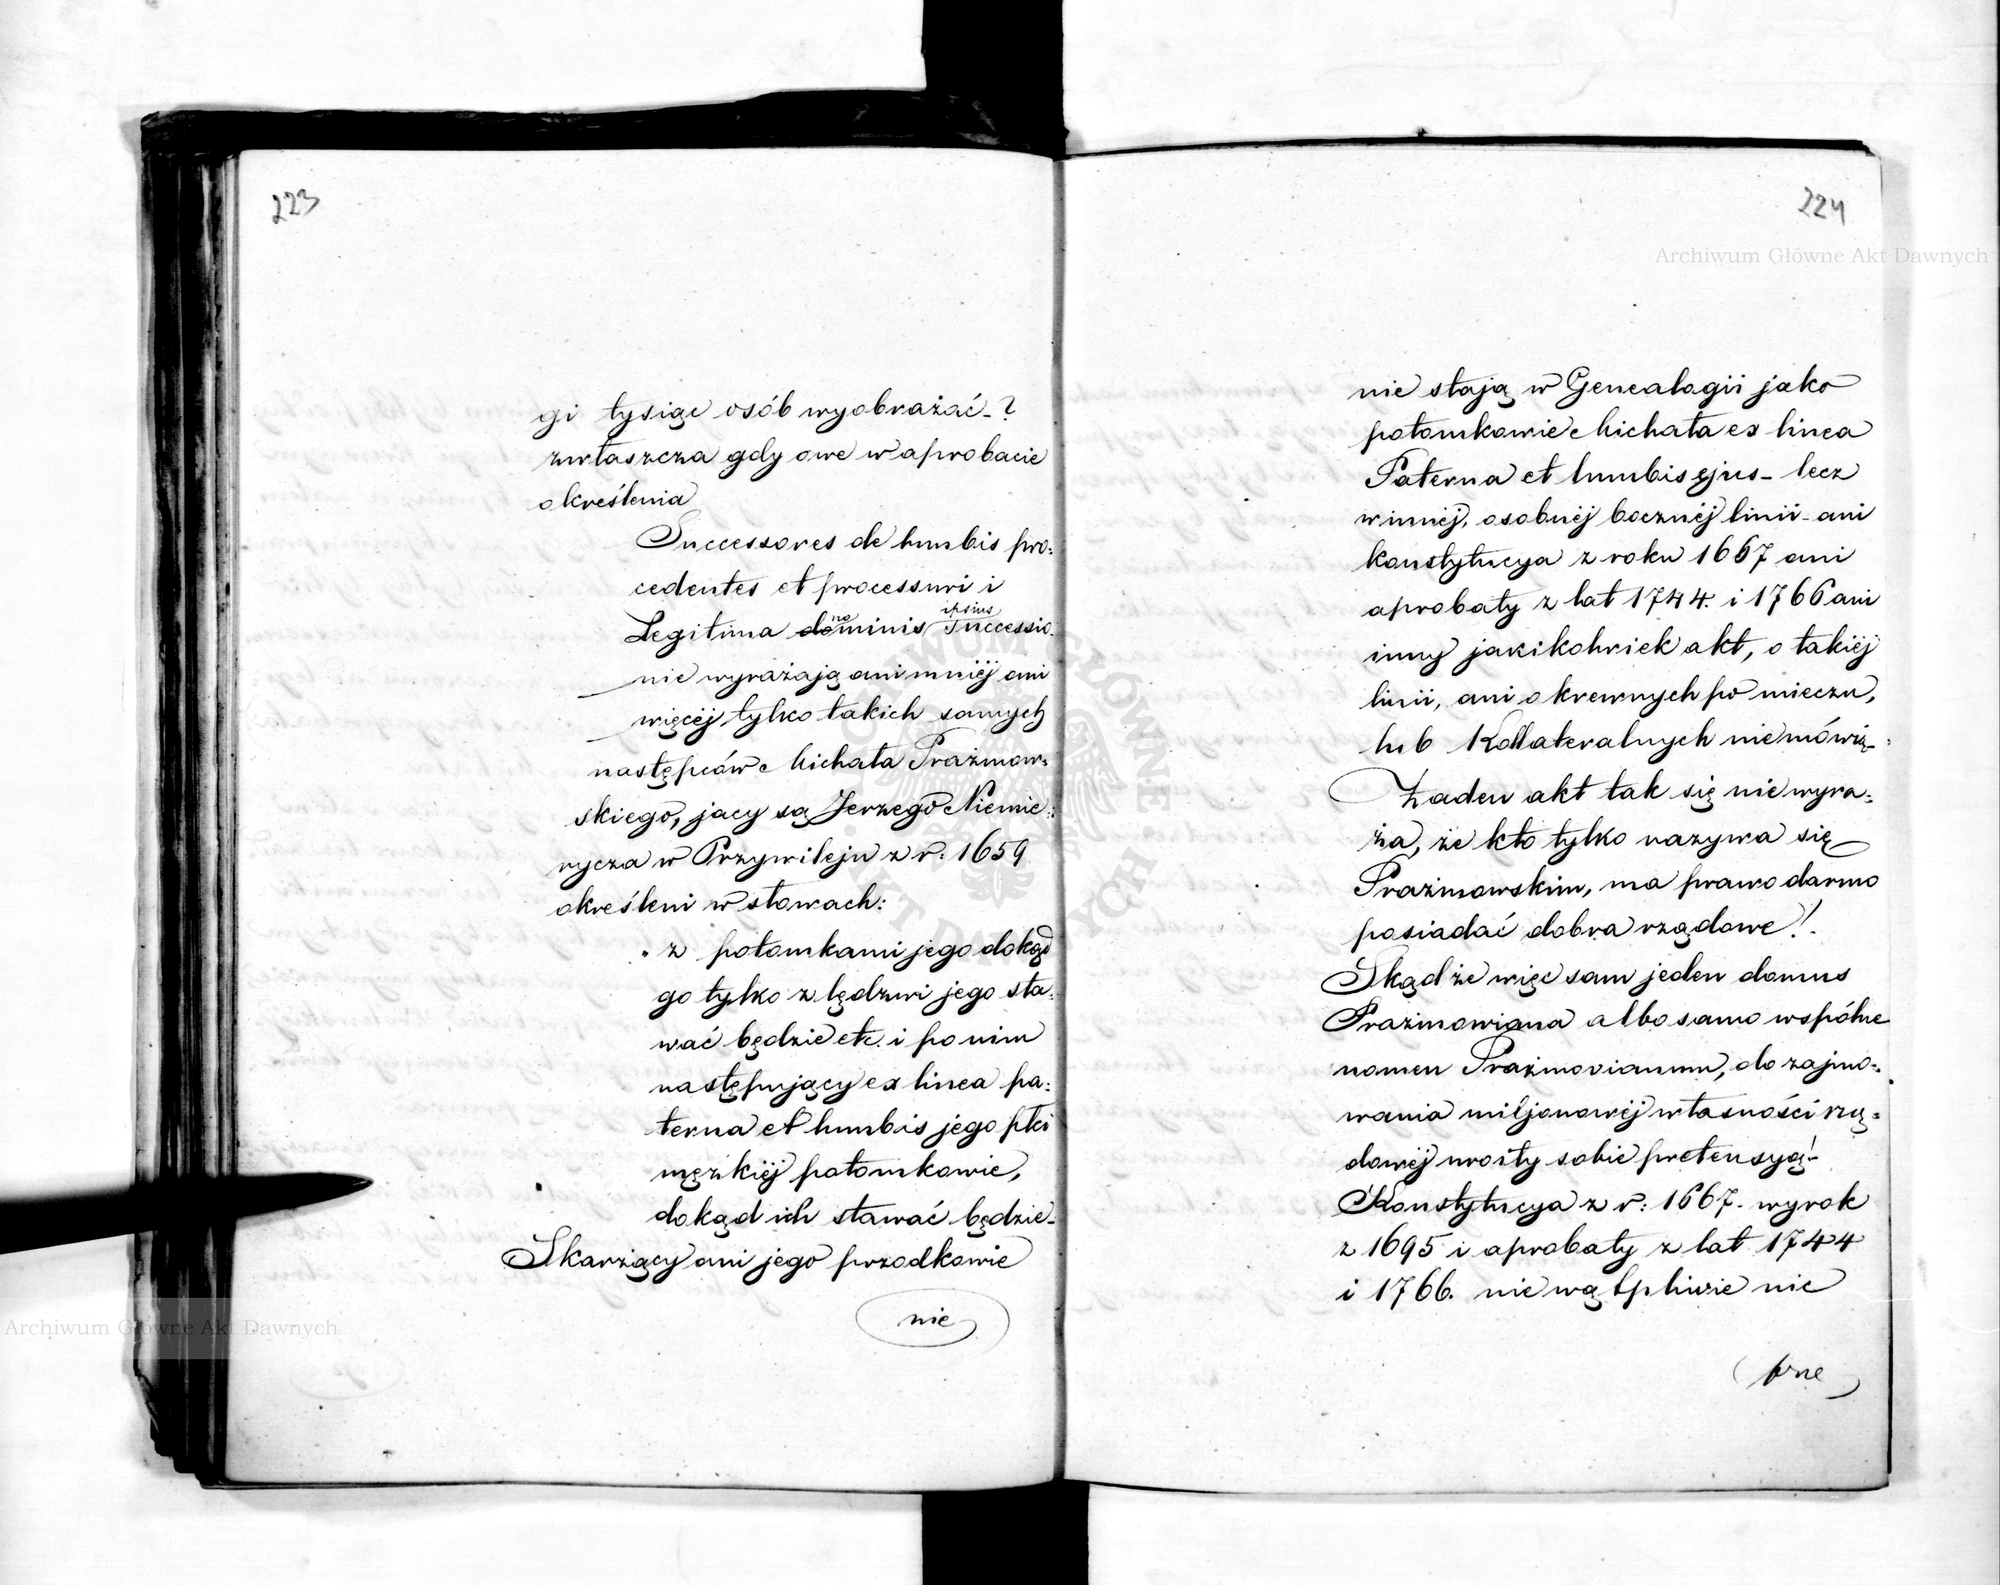 223
gi tysiąc osób wyobrażać-?
zwłaszcza gdy owe w aprobacie
określenia
Successores de lumbis pro:
cedentes et processuri i
ipsius
Legitima dominis Successio_
nie wyrażają ani mniéj ani
więcéj, tylko takich samych
następców Michała Prażmow:
skiego, jacy są Jerzego Niemie:
rycza w Przywileju z r: 1659
określeni w słowach:
"z potomkami jego dokąd
go tylko z lędzwi jego sta:
wać będzie etc. i po nim
następujący ex linea pa:
terna et lumbis jego płci
męzkiéj potomkowie,
dokąd ich stawać będzie_
Skarżący ani jego przodkowie
nie
224
nie stają w Genealogii jako
potomkowie Michała ex linea
Paterna et lumbis ejus_ lecz
w innéj, osobnéj bocznéj linii_ ani
konstytucya z roku 1667 ani
aprobaty z lat 1744. i 1766 ani
inny jakikolwiek akt, o takiéj
linii, ani o krewnych po mieczu,
lub Kollateralnych nie mówią_
Żaden akt tak się nie wyra:
ża, że kto tylko nazywa się
Prażmowskim, ma prawo darmo
posiadać dobra rządowe!.
Skąd że więc sam jeden domus
Prażmowiana albo samo wspólne
nomen Prażmovianum, do zajmo:
wania miljonowéj własności rzą:
dowéj urosły sobie pretensyą!_
Konstytucya z r: 1667. wyrok
z 1695 i aprobaty z lat 1744
i 1766. nie wątpliwie nie
Archiwum Główne Akt Dawnych
Archiwum Główne Akt Dawnych
ARCHIWUM GŁÓWNE AKT DAWNYCH